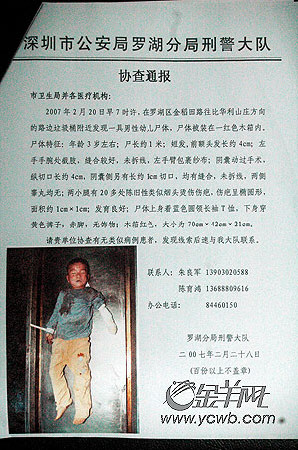 深圳市公安局罗湖分局刑警大队
协查通报
市卫生局并各医疗机构:
2007 年 2 月 20 日早 7 时许，在罗湖区金稻田路往比华利山庄方向
的路边垃圾桶附近发现一具男性幼儿尸体，尸体被装在一红色木箱内。
尸体特征：年龄 3 岁左右；尸长约 1 米；短发，前额头发长约 4cm；左
手手腕处截肢，缝合较好，未拆线，左手臂包裹纱布；阴囊动过手术，
纵切口长约 4cm，阴囊侧另有长约 1cm 切口，均有缝合，未拆线，两侧
睾丸均无；两小腿有 20 多处陈旧性类似烟头烫伤伤疤，伤疤呈椭圆形，
面积约 1cm×1cm；发育良好；尸体上身着蓝色圆领长袖 T 恤，下身穿
黄色裤子，赤脚，无饰物；木箱红色，大小为 70cm×42cm×21cm。
请贵单位协查有无类似病例患者，发现线索后速与我大队联系。
联系人：朱良军 13903020588
陈育鸿 13688809616
办公电话： 84460150
罗湖分局刑警大队
二00七年二月二十八日
(百份以上不盖章)
金羊网
www.ycwb.com